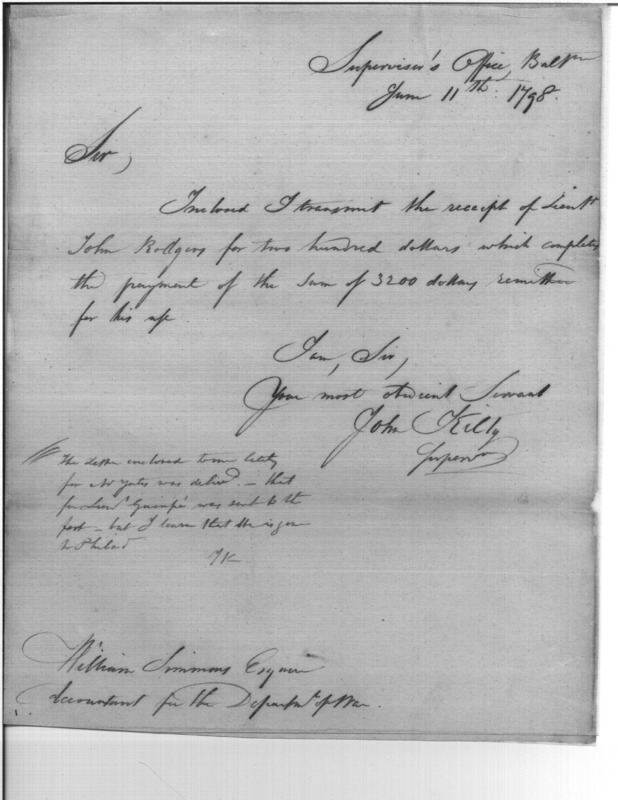 Supervisor's Office, Baltre
June 11th. 1798.
Sir,
Inclosed I transmit the receipt of Lieutt
John Rodgers for two hundred dollars which completes
the payment of the sum of 3200 dollars remitted
for his use.
I am, Sir,
Your most obedient Servant
John Kilty
Supervr
The Letter inclosed to me lately
for Mr Yates was deliverd. – that
for Lieut. was sent to the
fort – but I learn that he is gone
to Philad
JK
William Simmons Esquire
Accountant for the Departmt. of War.